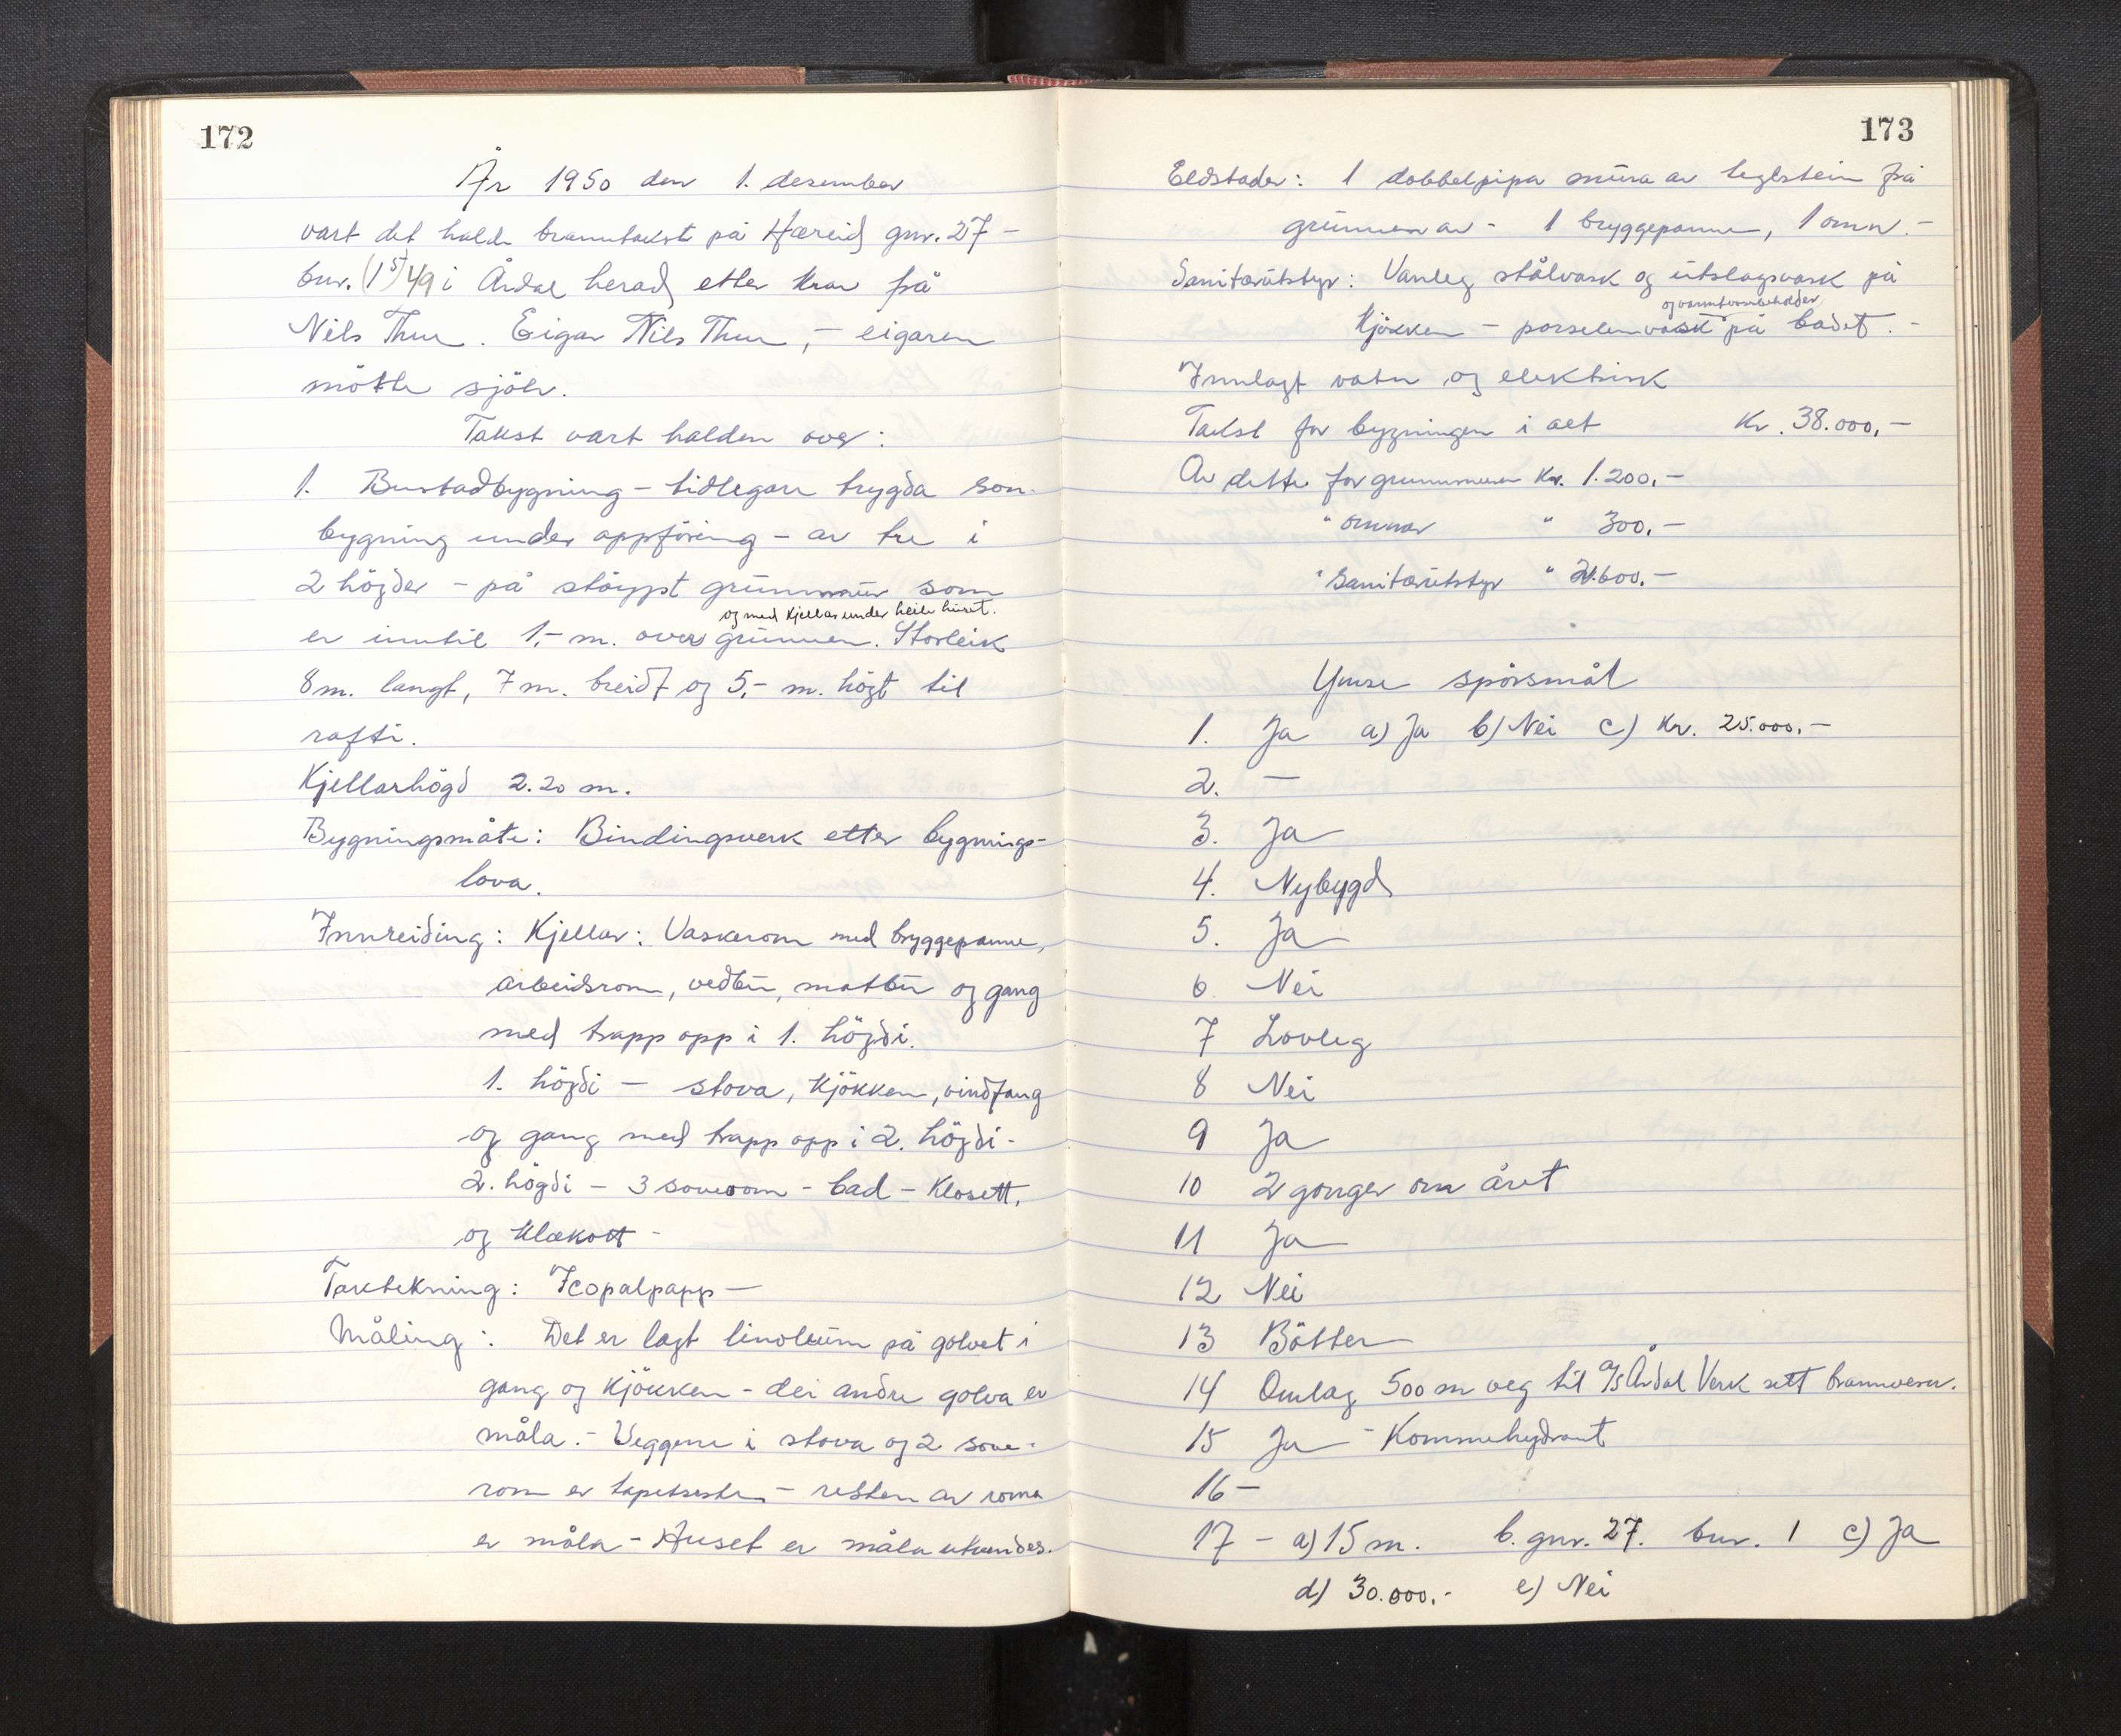 172
År 1950 den 1. desember
vart det halde branntakst på Hæreid gnr. 27 –
bnr. (15) 49 i Årdal herad etter krav frå
Nils Thue. Eigar Nils Thue, – eigaren
møtte sjölv.
Takst vart halden over:
1. Bustadbygning – tidlegare trygda som
bygning under oppföring – av tre i
2 högder – på stöypt grunnmur som
og med kjellar under heile huset.
er inntil 1,– m. over grunnen. Storleik
8 m. langt, 7 m. breidt og 5,– m. högt til
rafti.
Kjellarhögd 2.20 m.
Bygningsmåte: Bindingsverk etter bygnings-
lova.
Innreiding: Kjellar: Vaskerom med bryggepanne,
arbeidsrom, vedbu, matbu og gang
med trapp opp i 1. högdi.
1. högdi – stova, kjökken, vindfang
og gang med trapp opp i 2. högdi –
2. högdi – 3 soverom – bad – klosett,
og klækott –
Taktekning: Icopalpapp –
Måling: Det er lagt linoleum på golvet i
gang og kjökken – dei andre golva er
måla. – Veggene i stova og 2 sove-
rom er tapetserte – resten av roma
er måla – Huset er måla utvendes.
173
Eldstader: 1 dobbelpipa mura av teglstein frå
grunnen av – 1 bryggepanne, 1 omn. –
Sanitærutstyr: Vanleg stålvask og utslagsvask på
og varmtvassbehalder
kjökken – porselenvask på badet. –
Innlagt vatn og elektrisk
Takst for bygningen i alt Kr. 38.000,–
Av dette for grunnmuren Kr. 1.200,–
" omnar " 300,–
" Sanitærutstyr " 2.600,–
Ymse spörsmål
1. Ja a) Ja b) Nei c) Kr. 25.000,–
2. –
3. Ja
4. Nybygd
5. Ja
6 Nei
7 Lovleg
8 Nei
9 Ja
10 2 gonger om året
11 Ja
12 Nei
13 Bötter
14 Omlag 500 m veg til A/S Årdal Verk sitt brannvern.
15 Ja – Kommehydrant
16 –
17 – a) 15 m. b. gnr. 27. bnr. 1 c) Ja
d) 30.000,– e) Nei